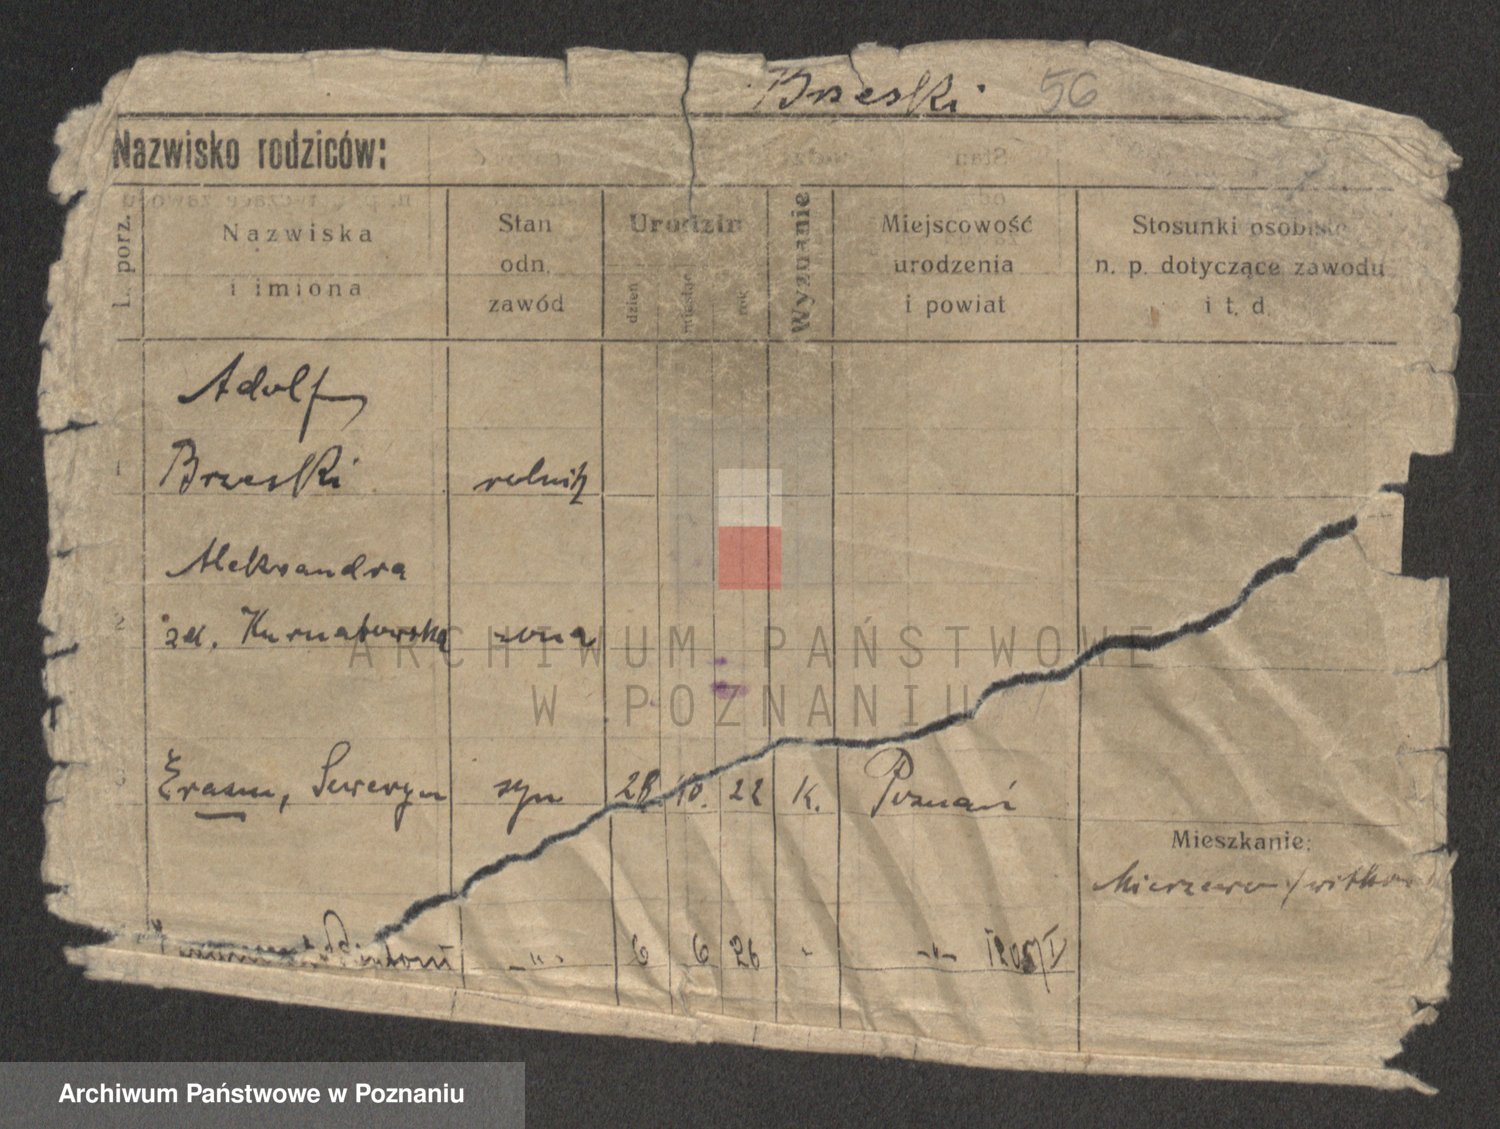 Brzeski 56
Nazwisko rodziców:
L. porz.
Nazwiska
i imiona
Stan
odn.
zawód
Urodzin
dzień
miesiąc
rok
Wyznanie
Miejscowość
urodzenia
i powiat
Stosunki osobiste
n. p. dotyczące zawodu
i t. d.
Adolf
1 Brzeski rolnik
Aleksandra
2 zd. Kurnatowska żona
ARCHIWUM PAŃSTWOWE
W POZNANIU
Erazm, Seweryn syn 28. 10. 22 K. Poznań
Mieszkanie:
Mierzewo
-"- 6 6 26 -"-
Archiwum Państwowe w Poznaniu